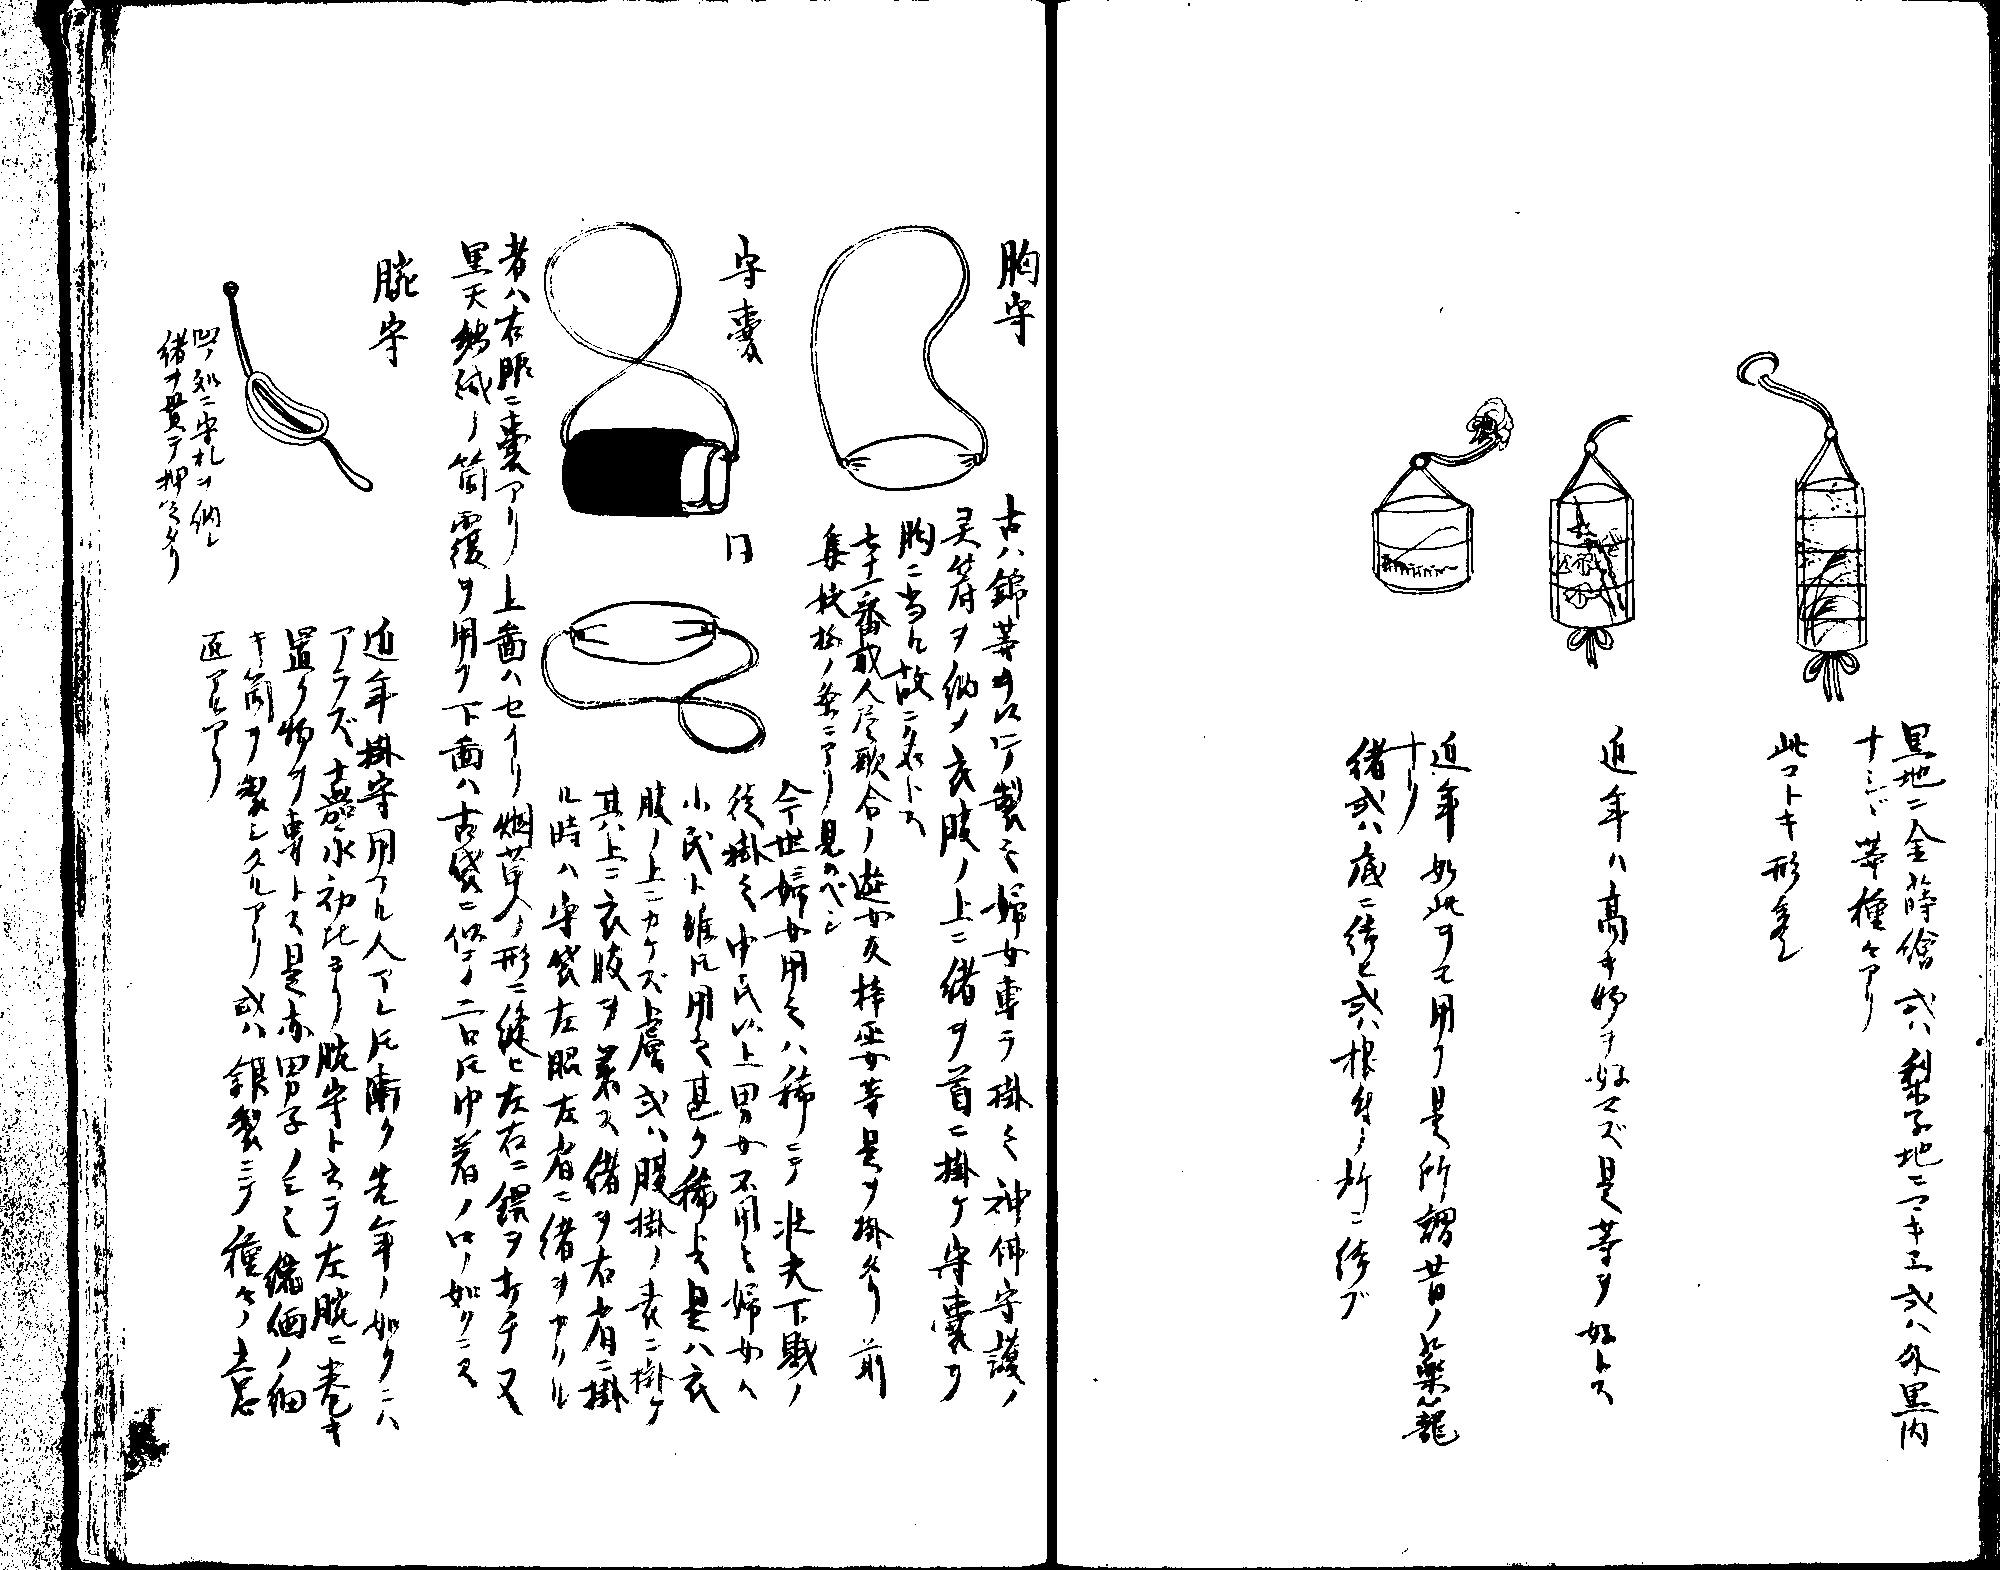 黒地ニ金蒔繪或ハ梨子地ニマキヱ或ハ外黒内
ナシジ等種々アリ
此コトキ形
近年ハ高キ物ヲ好マズ是等ヲ好トス
近年如此ヲモ用フ是所謂昔ノ薬籠
ナリ
緒或ハ底ニ結ヒ或ハ根付ノ所ニ結ブ
胸守
古ハ錦等ヲ以テ製之婦女専ラ掛之神佛守護ノ
灵符ヲ納メ衣服ノ上ニ緒ヲ首ニ掛ケ守嚢ヲ
胸ニ当ル故ニ名トス
七十一番職人尽歌合ノ遊女及梓巫女等是ヲ掛タリ前
集被掛ノ条ニアリ見のベシ
守嚢
同
今世婦女用之ハ稀ニテ壮夫下賎ノ
徒掛之中民以上男女不用之婦女ハ
小民ト雖ドモ用之甚タ稀トス是ハ衣
服ノ上ニカケズ上層或ハ腹掛ノ表ニ掛ケ
其上ニ衣服ヲ着ス緒ヲ右肩ニ掛
ル時ハ守袋左脇左肩ニ緒ヲカクル
者ハ右脇ニ嚢アリ上図ハセイリ烟草入ノ形ニ縫ヒ左右ニ鐶ヲ打チ又
黒天鵞絨ノ筒覆ヲ用フ下図ハ古袋ニ似テ二口トモ巾着ノ口ノ如クニス
腕守
近年掛守用フル人アレトモ漸ク先年ノ如クニハ
アラズ嘉永初比ヨリ腕守ト云テ左腕ニ巻キ
置ク物ヲ専トス是亦男子ノミ之繻緬ノ細
キ筒ヲ製シタルアリ或ハ銀製ニテ種々ノ
凹ノ処ニ守札ヲ納レ
緒ヲ貫テ押ヘタリ